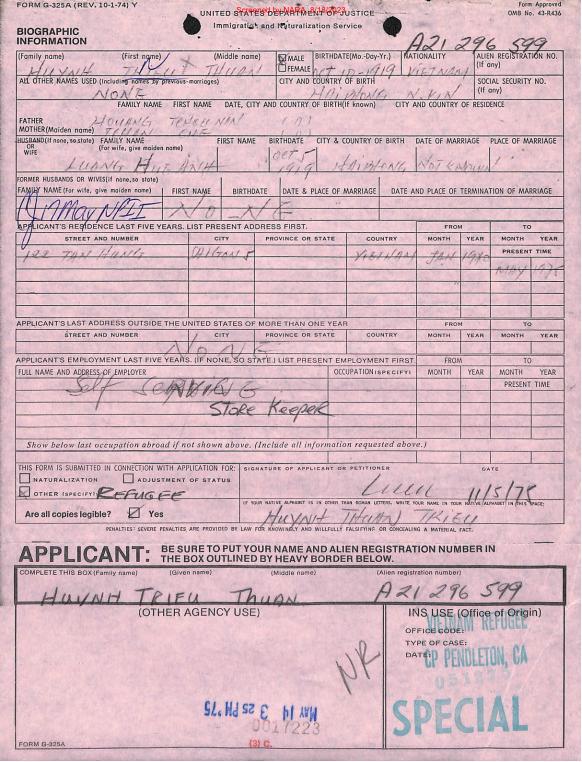 FORM G-325A (REV. 10-1-74) Y
Screened by NARA, 8/18/2023
Form Approved
OMB No. 43-R436
UNITED STATES DEPARTMENT OF JUSTICE
Immigration and Naturalization Service
BIOGRAPHIC
INFORMATION
A21 296 599
(Family name) (First name) (Middle name) MALE FEMALE BIRTHDATE(Mo.-Day-Yr.) NATIONALITY ALIEN REGISTRATION NO. (If any)
HUYNH THUAN OCT 10-1919 VIETNAM
ALL OTHER NAMES USED (Including names by previous-marriages) CITY AND COUNTRY OF BIRTH SOCIAL SECURITY NO. (If any)
NONE HAIPHONG
FAMILY NAME FIRST NAME DATE, CITY AND COUNTRY OF BIRTH(If known) CITY AND COUNTRY OF RESIDENCE
FATHER
MOTHER(Maiden name)
HUSBAND(If none, so state) OR WIFE FAMILY NAME (For wife, give maiden name) FIRST NAME BIRTHDATE CITY & COUNTRY OF BIRTH DATE OF MARRIAGE PLACE OF MARRIAGE
OCT 5 1919 HAIPHONG
FORMER HUSBANDS OR WIVES(if none, so state)
FAMILY NAME (For wife, give maiden name) FIRST NAME BIRTHDATE DATE & PLACE OF MARRIAGE DATE AND PLACE OF TERMINATION OF MARRIAGE
NO-NE
APPLICANT'S RESIDENCE LAST FIVE YEARS. LIST PRESENT ADDRESS FIRST. FROM TO
STREET AND NUMBER CITY PROVINCE OR STATE COUNTRY MONTH YEAR MONTH YEAR
PRESENT TIME
TAN HUNG VIETNAM JAN MAY 1975
APPLICANT'S LAST ADDRESS OUTSIDE THE UNITED STATES OF MORE THAN ONE YEAR FROM TO
STREET AND NUMBER CITY PROVINCE OR STATE COUNTRY MONTH YEAR MONTH YEAR
NONE
APPLICANT'S EMPLOYMENT LAST FIVE YEARS. (IF NONE, SO STATE.) LIST PRESENT EMPLOYMENT FIRST FROM TO
FULL NAME AND ADDRESS OF EMPLOYER OCCUPATION (SPECIFY) MONTH YEAR MONTH YEAR
PRESENT TIME
Self
Store Keeper
Show below last occupation abroad if not shown above. (Include all information requested above.)
THIS FORM IS SUBMITTED IN CONNECTION WITH APPLICATION FOR: SIGNATURE OF APPLICANT OR PETITIONER DATE
NATURALIZATION ADJUSTMENT OF STATUS
OTHER (SPECIFY) REFUGEE 11/5/75
IF YOUR NATIVE ALPHABET IS IN OTHER THAN ROMAN LETTERS, WRITE YOUR NAME IN YOUR NATIVE ALPHABET IN THIS SPACE:
Are all copies legible? Yes HUYNH THUAN TRIEU
PENALTIES: SEVERE PENALTIES ARE PROVIDED BY LAW FOR KNOWINGLY AND WILLFULLY FALSIFYING OR CONCEALING A MATERIAL FACT.
APPLICANT: BE SURE TO PUT YOUR NAME AND ALIEN REGISTRATION NUMBER IN THE BOX OUTLINED BY HEAVY BORDER BELOW.
COMPLETE THIS BOX (Family name) (Given name) (Middle name) (Alien registration number)
HUYNH TRIEU THUAN A21 296 599
(OTHER AGENCY USE) INS USE (Office of Origin)
VIETNAM REFUGEE
OFFICE CODE:
TYPE OF CASE:
DATE:
CP PENDLETON, CA
SPECIAL
NR
MAY 14 3 25 PM '75
0017223
(3) C.
FORM G-325A